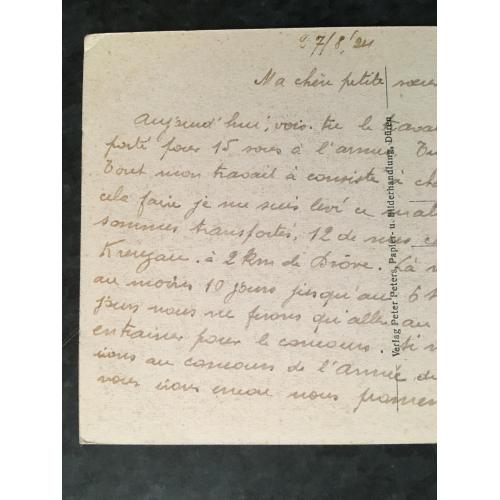 27/8/24
Ma chère petite sœur
Aujourd'hui, vois-tu le travail
porté pour 15 jours à l'armée.
Tout mon travail à consisté à
cela faire je me suis levé ce
sommes transportés, 12 de nos
Kreuzau. à 2 km de Drove. Là
au moins 10 jours jusqu'au 6
jours nous ne ferons qu'aller au
entrainer pour le concours. Si
nous au concours de l'Armée
nous irons encore nous
Verlag Peter Peters, Papier- u. Bilderhandlung, Düren